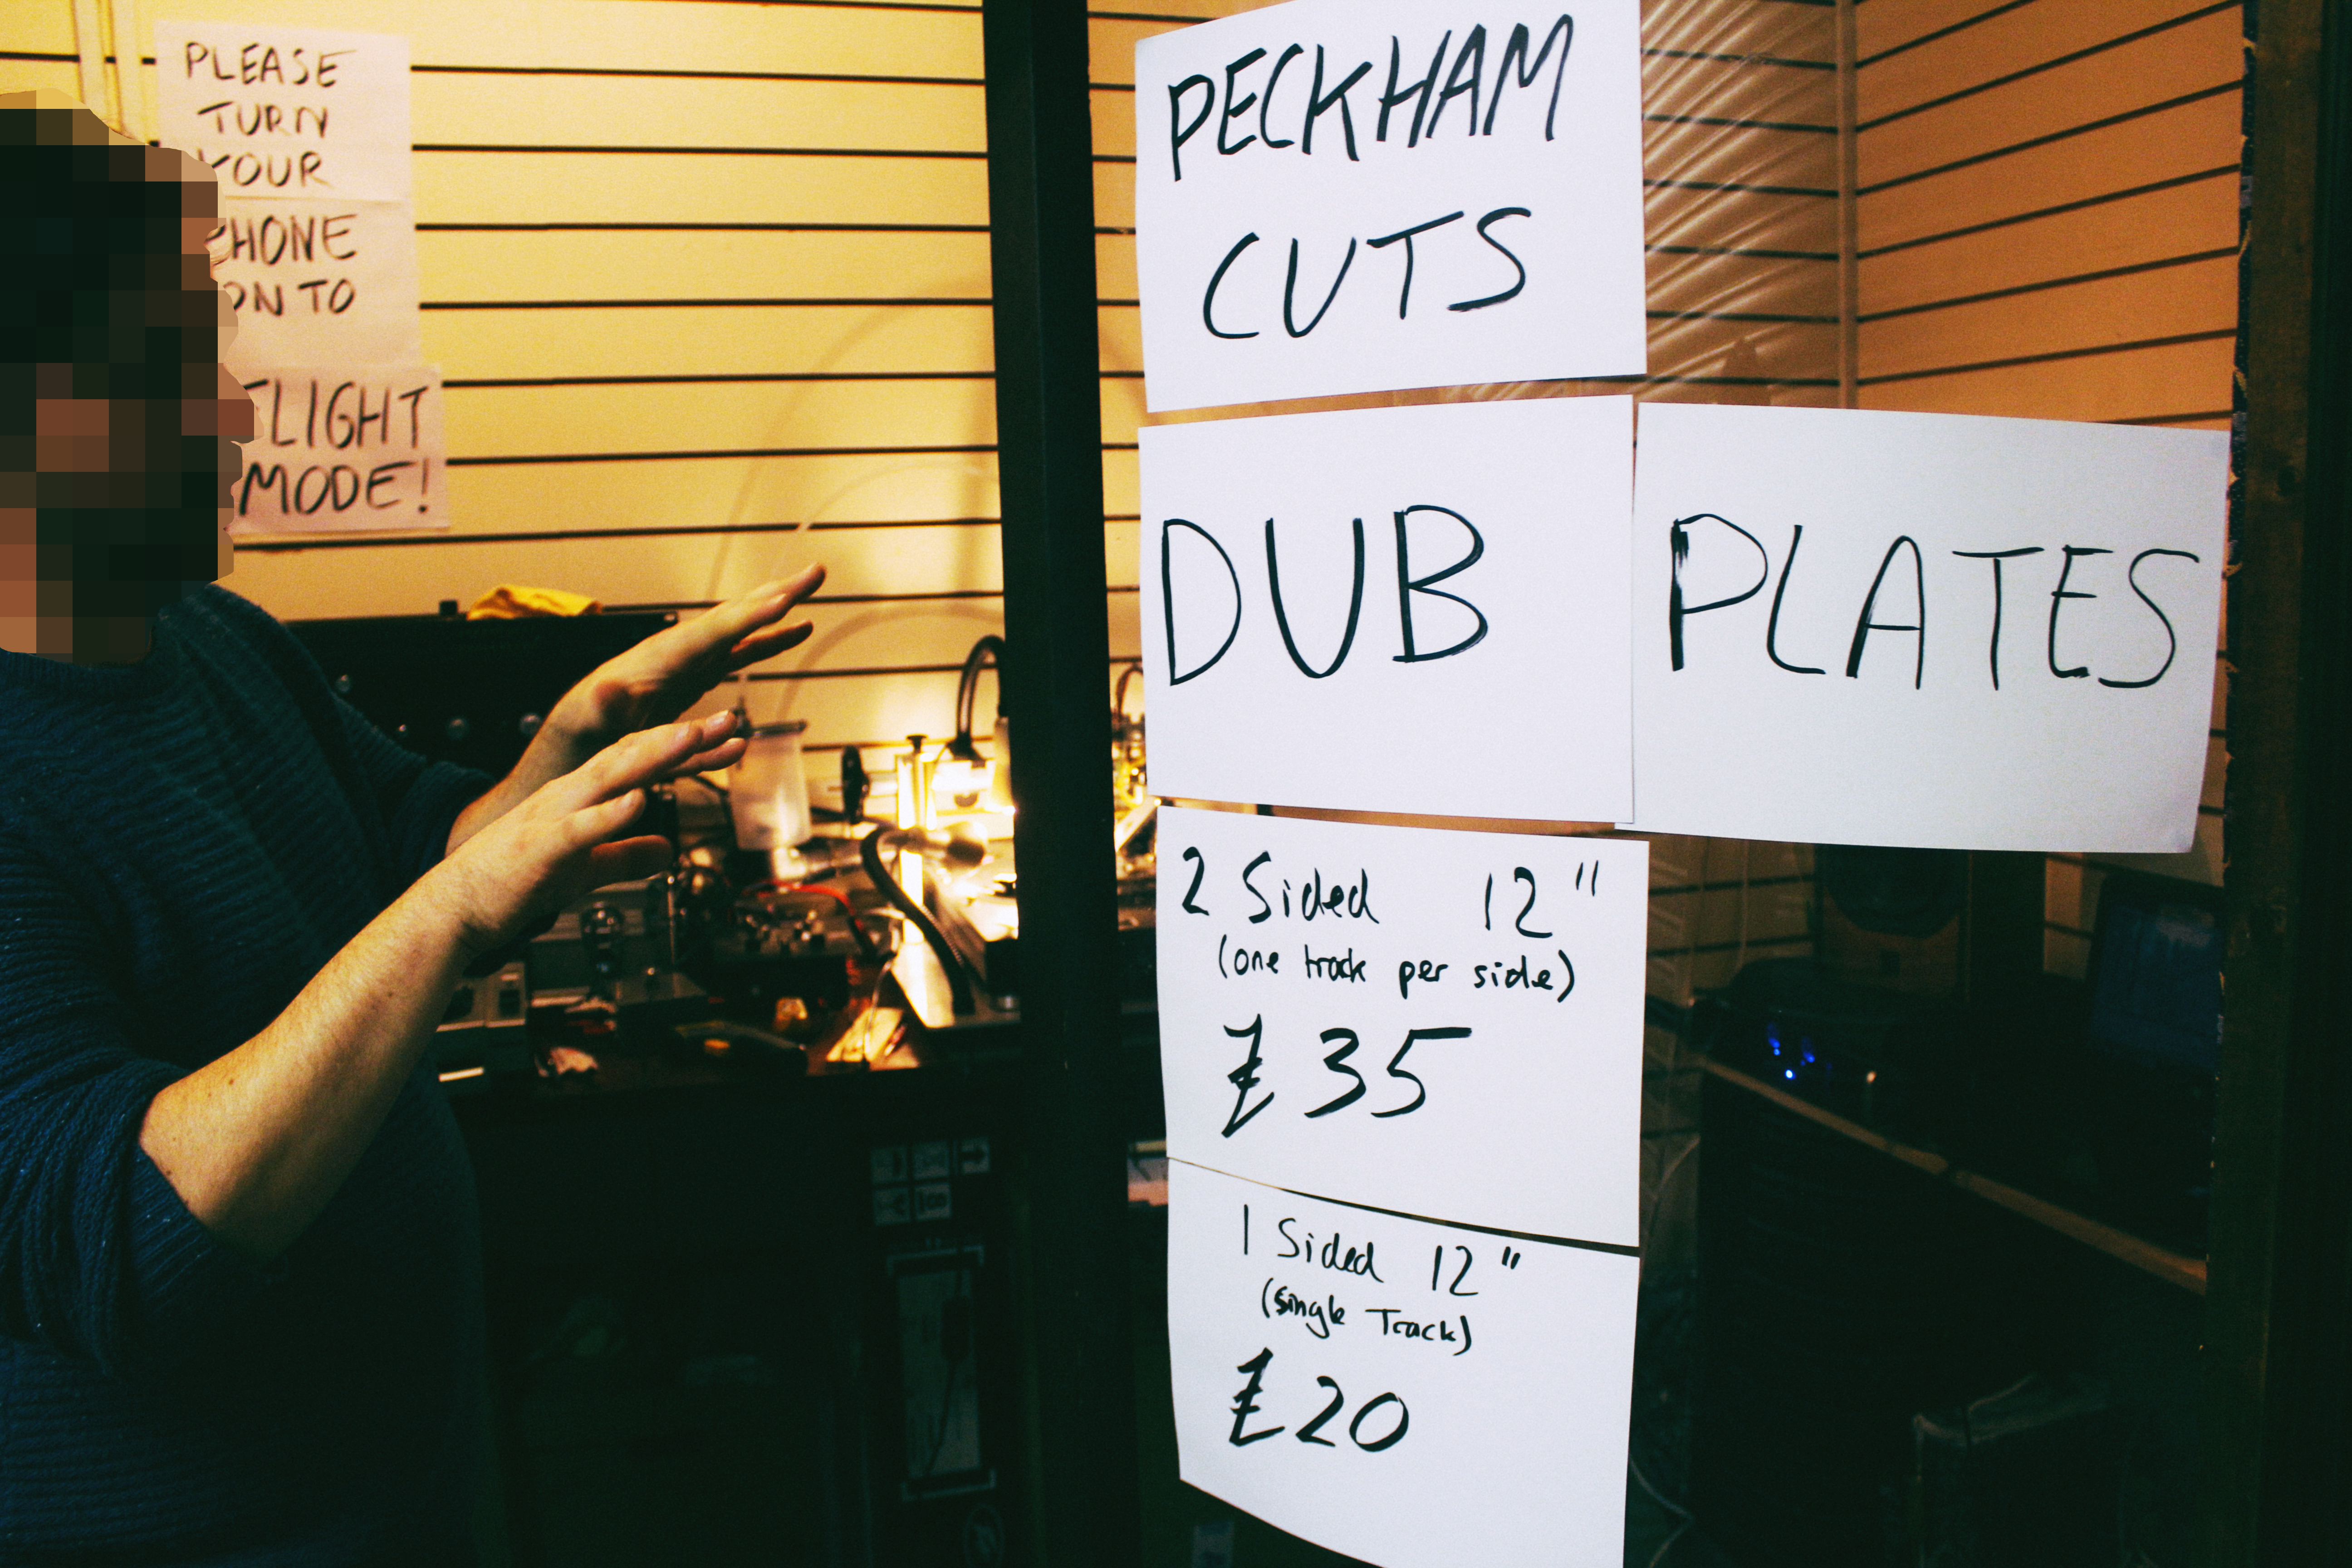 PLEASE
TURN
YOUR
PHONE
ON TO
FLIGHT
MODE!
PECKHAM
CUTS
DUB PLATES
2 Sided 12"
(one track per side)
£35
1 Sided 12"
(single Track)
£20